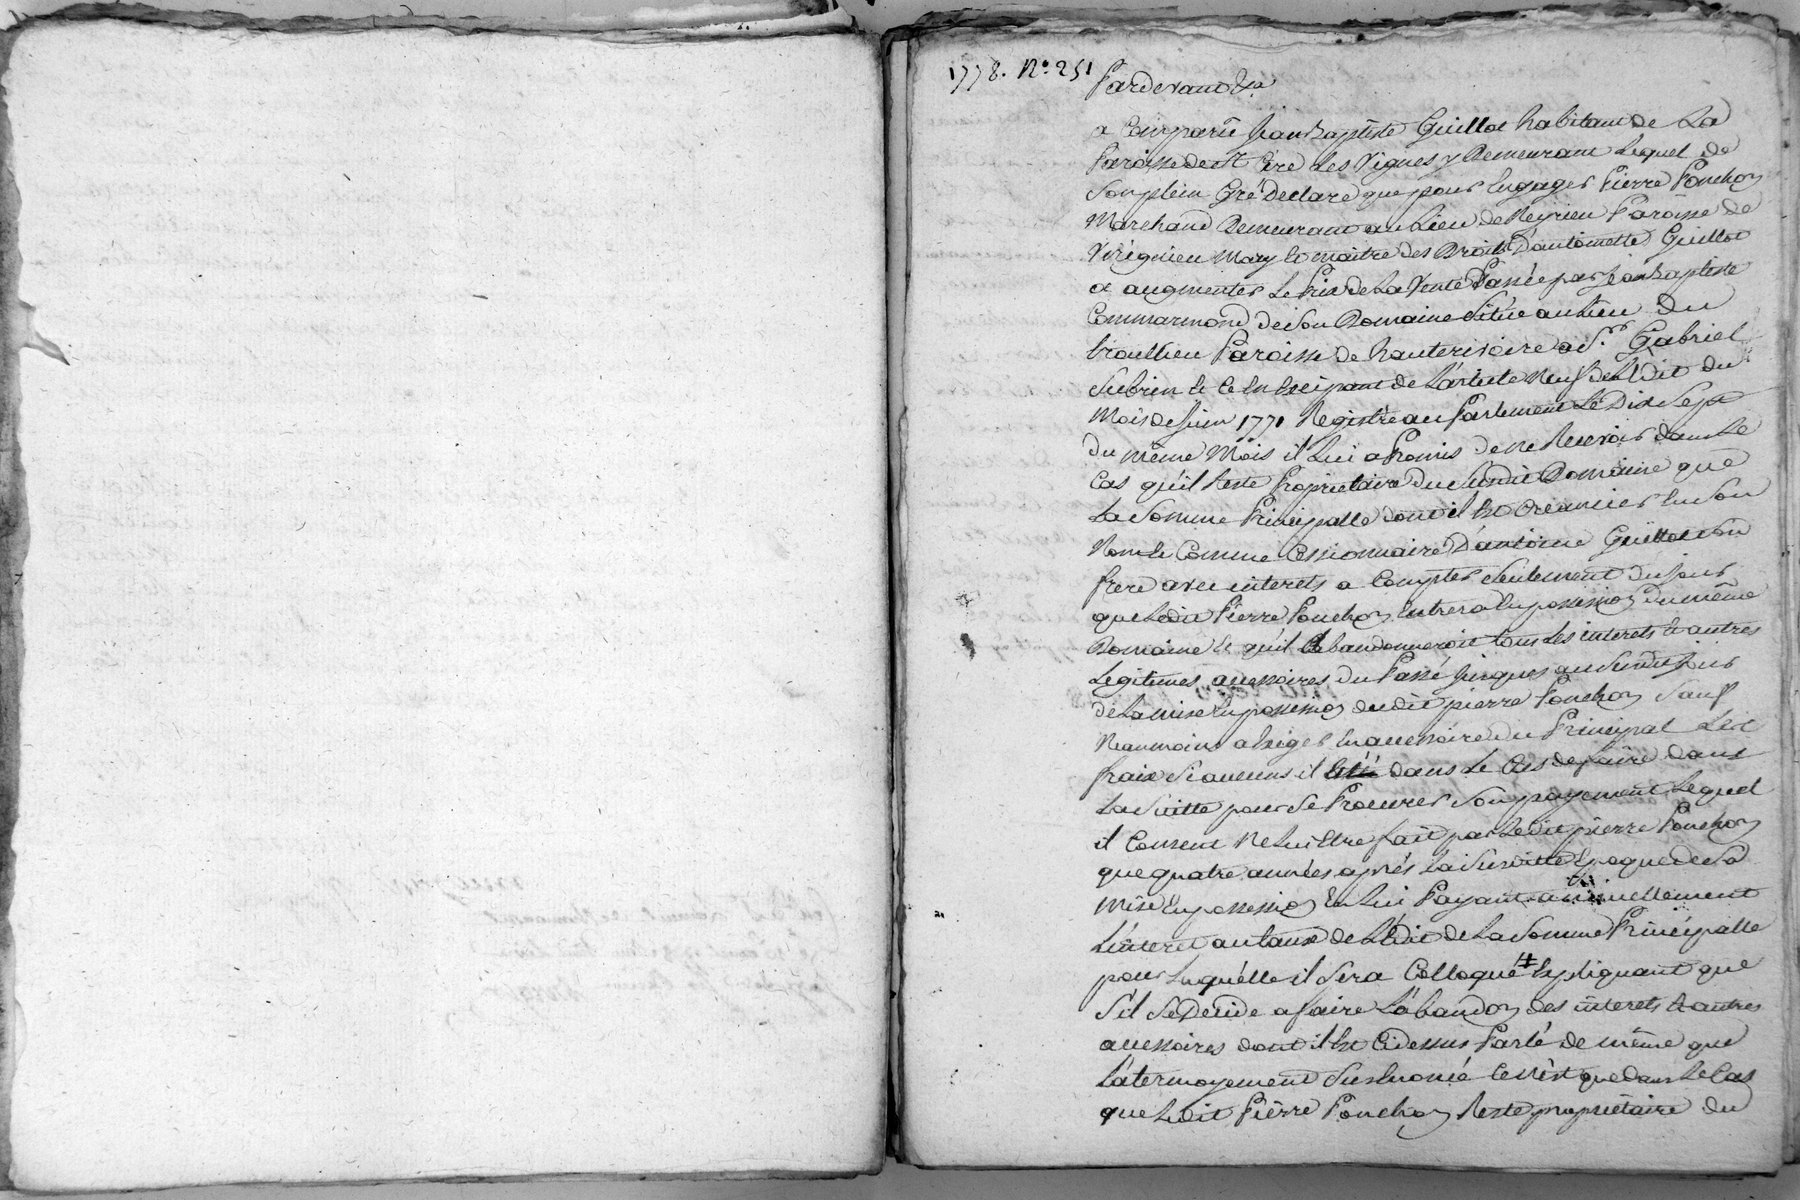 1778. N.° 251
Pardevant &a
a Comparû Jean Baptiste Guillot habitant de La
Paroisse de St Cire Les Vignes y Demeurant Lequel de
Son plein Gré Declare que pour Engager Pierre Ponchon
Marchand Demeurant au Lieu de Neyrieu Paroisse de
Virigneu Mary Et maitre des Droits D'antoinette Guillot
a augmenter Le Prix de La Vente Passée par Jean Baptiste
Commarmond de son Domaine Situé au Lieu du
Paroisse de hauterivoire a Sr. Gabriel
Subrin Et Ce En Exeipant de L'article Neuf de L'Edit du
Mois de Juin 1771 Registré au Parlement Le Dix Sept
Du même Mois il Lui a Promis de ne Recevoir dans Le
Cas qu'il Reste Proprietaire Du Susdit Domaine que
La Somme Principalle dont il Est Créancier En Son
Nom Et Comme Cessionnaire D'antoine Guillot Son
frere avec interets a Compter Seulement du Jour
que Ledit Pierre Ponchon Entrera En possession Du même
Domaine Et qu'il abandonneroit tous Les interets Et autres
Légitimes accessoires Du Passé Jusques au Susdit Jour
de La mise En possession dudit pierre Ponchon Sauf
Neanmoins a Exiger En accessoire Du Principal Les
fraix Si aucuns il dans Le Cas de faire dans
La Suitte pour Se Procurer Son payement Lequel
il Consent Ne Lui Etre fait par Ledit pierre Ponchon
que quatre années aprés La Susditte Epoque de Sa
Mise En possession En Lui Payant annuellement
L'interet au taux de L'Edit de La Somme Principalle
pour Laquelle il Sera Colloqué # Expliquant que
S'il Se Decide a faire L'abandon des interets Et autres
accessoires dont il Est Cidessus Parlé de même que
L'atermoyement Susénoncé Ce n'est que dans Le Cas
que Ledit Pierre Ponchon Reste propriétaire du